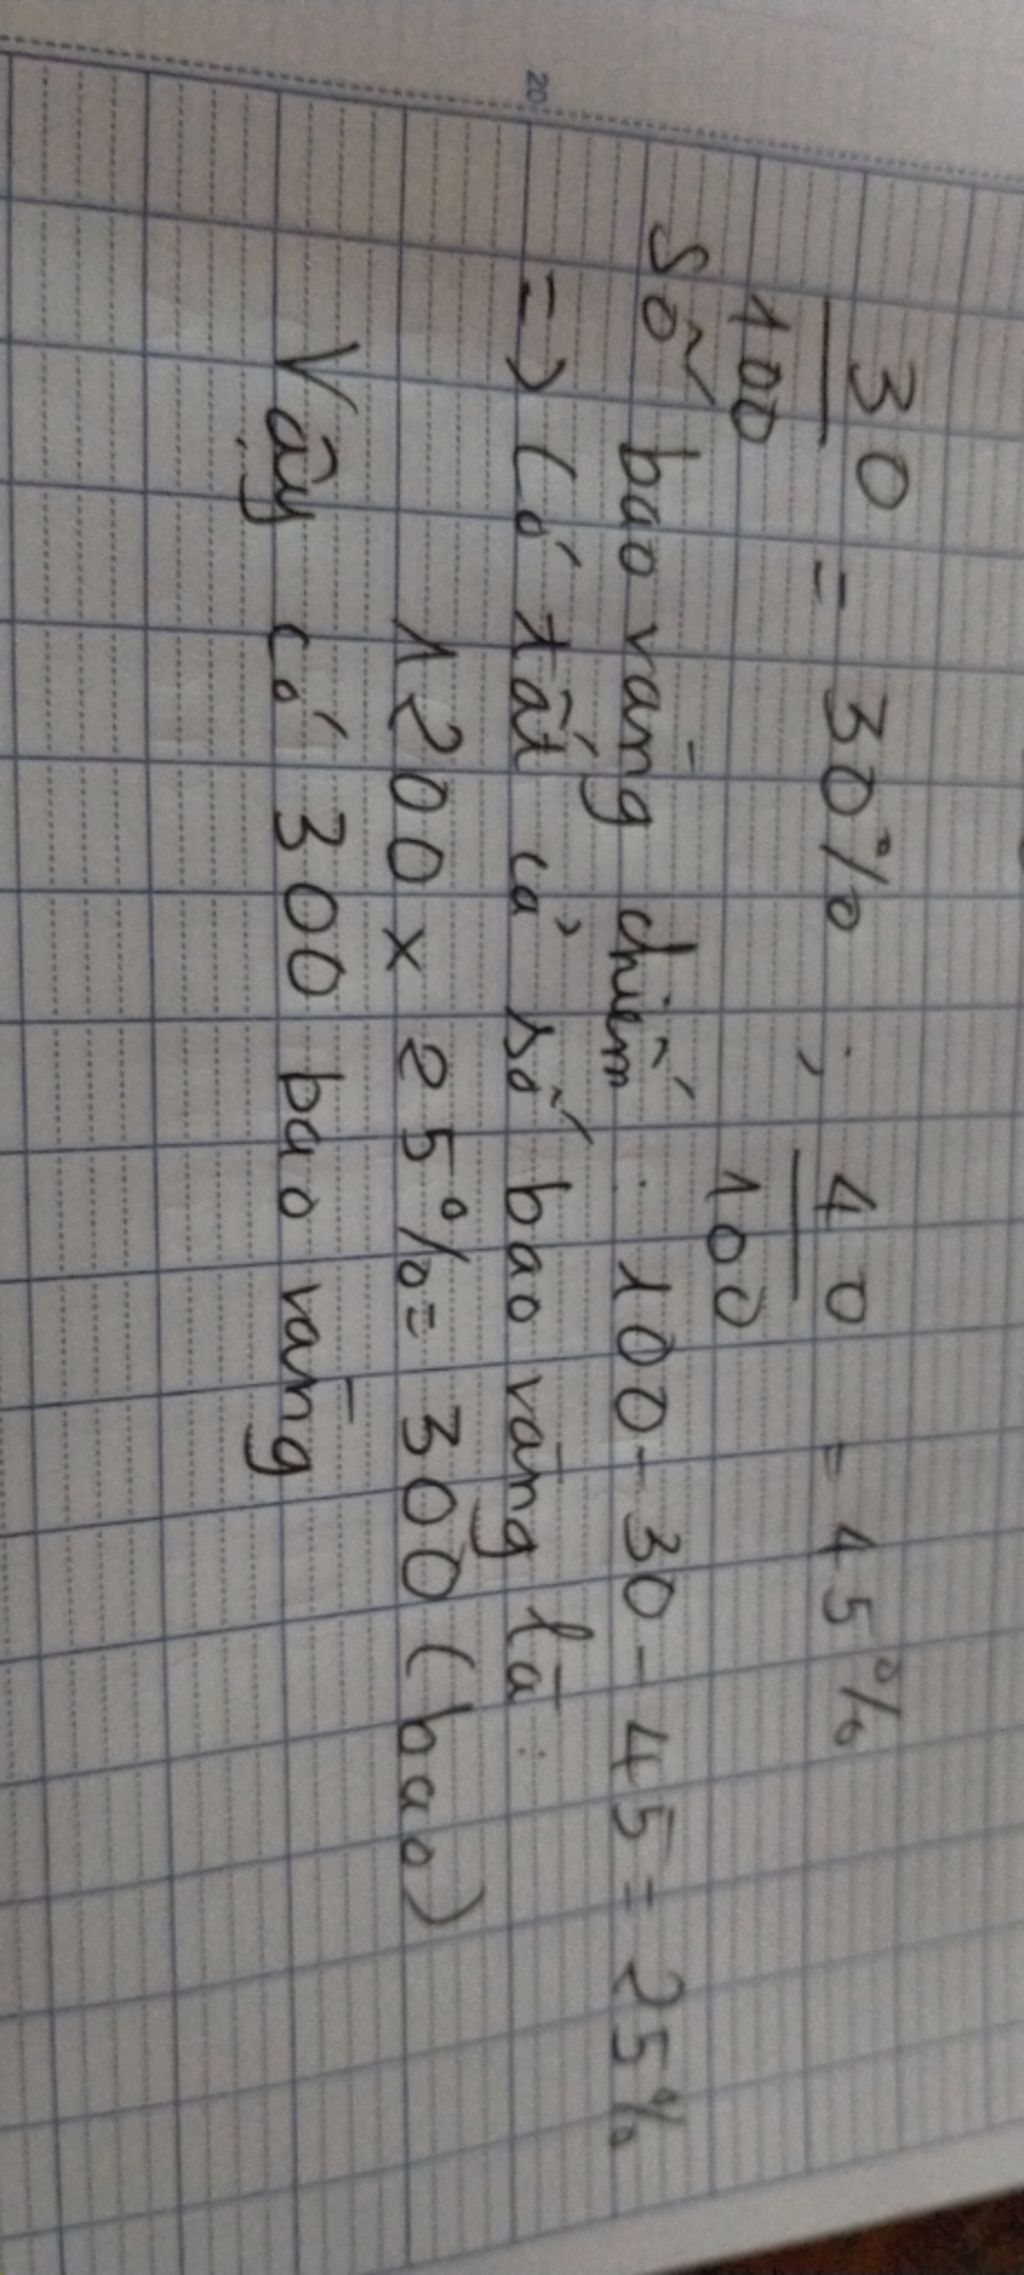 30/100 = 30% ; 40/100 = 45%
Số bao vàng chiếm : 100 - 30 - 45 = 25%
=> Có tất cả số bao vàng là :
1200 x 25% = 300 (bao)
Vậy có 300 bao vàng
20